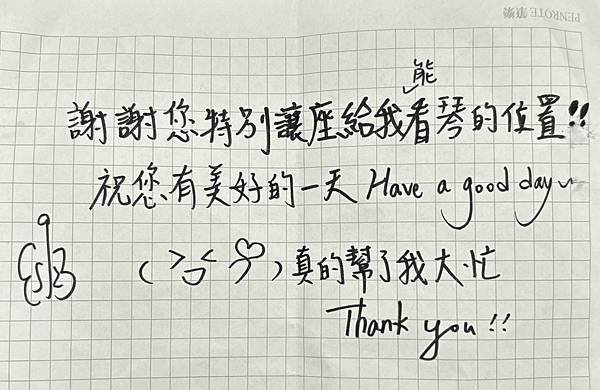 PENROTE 筆樂
謝謝您特別讓座給我能看琴的位置!!
祝您有美好的一天 Have a good day~
真的幫了我大忙
Thank you!!